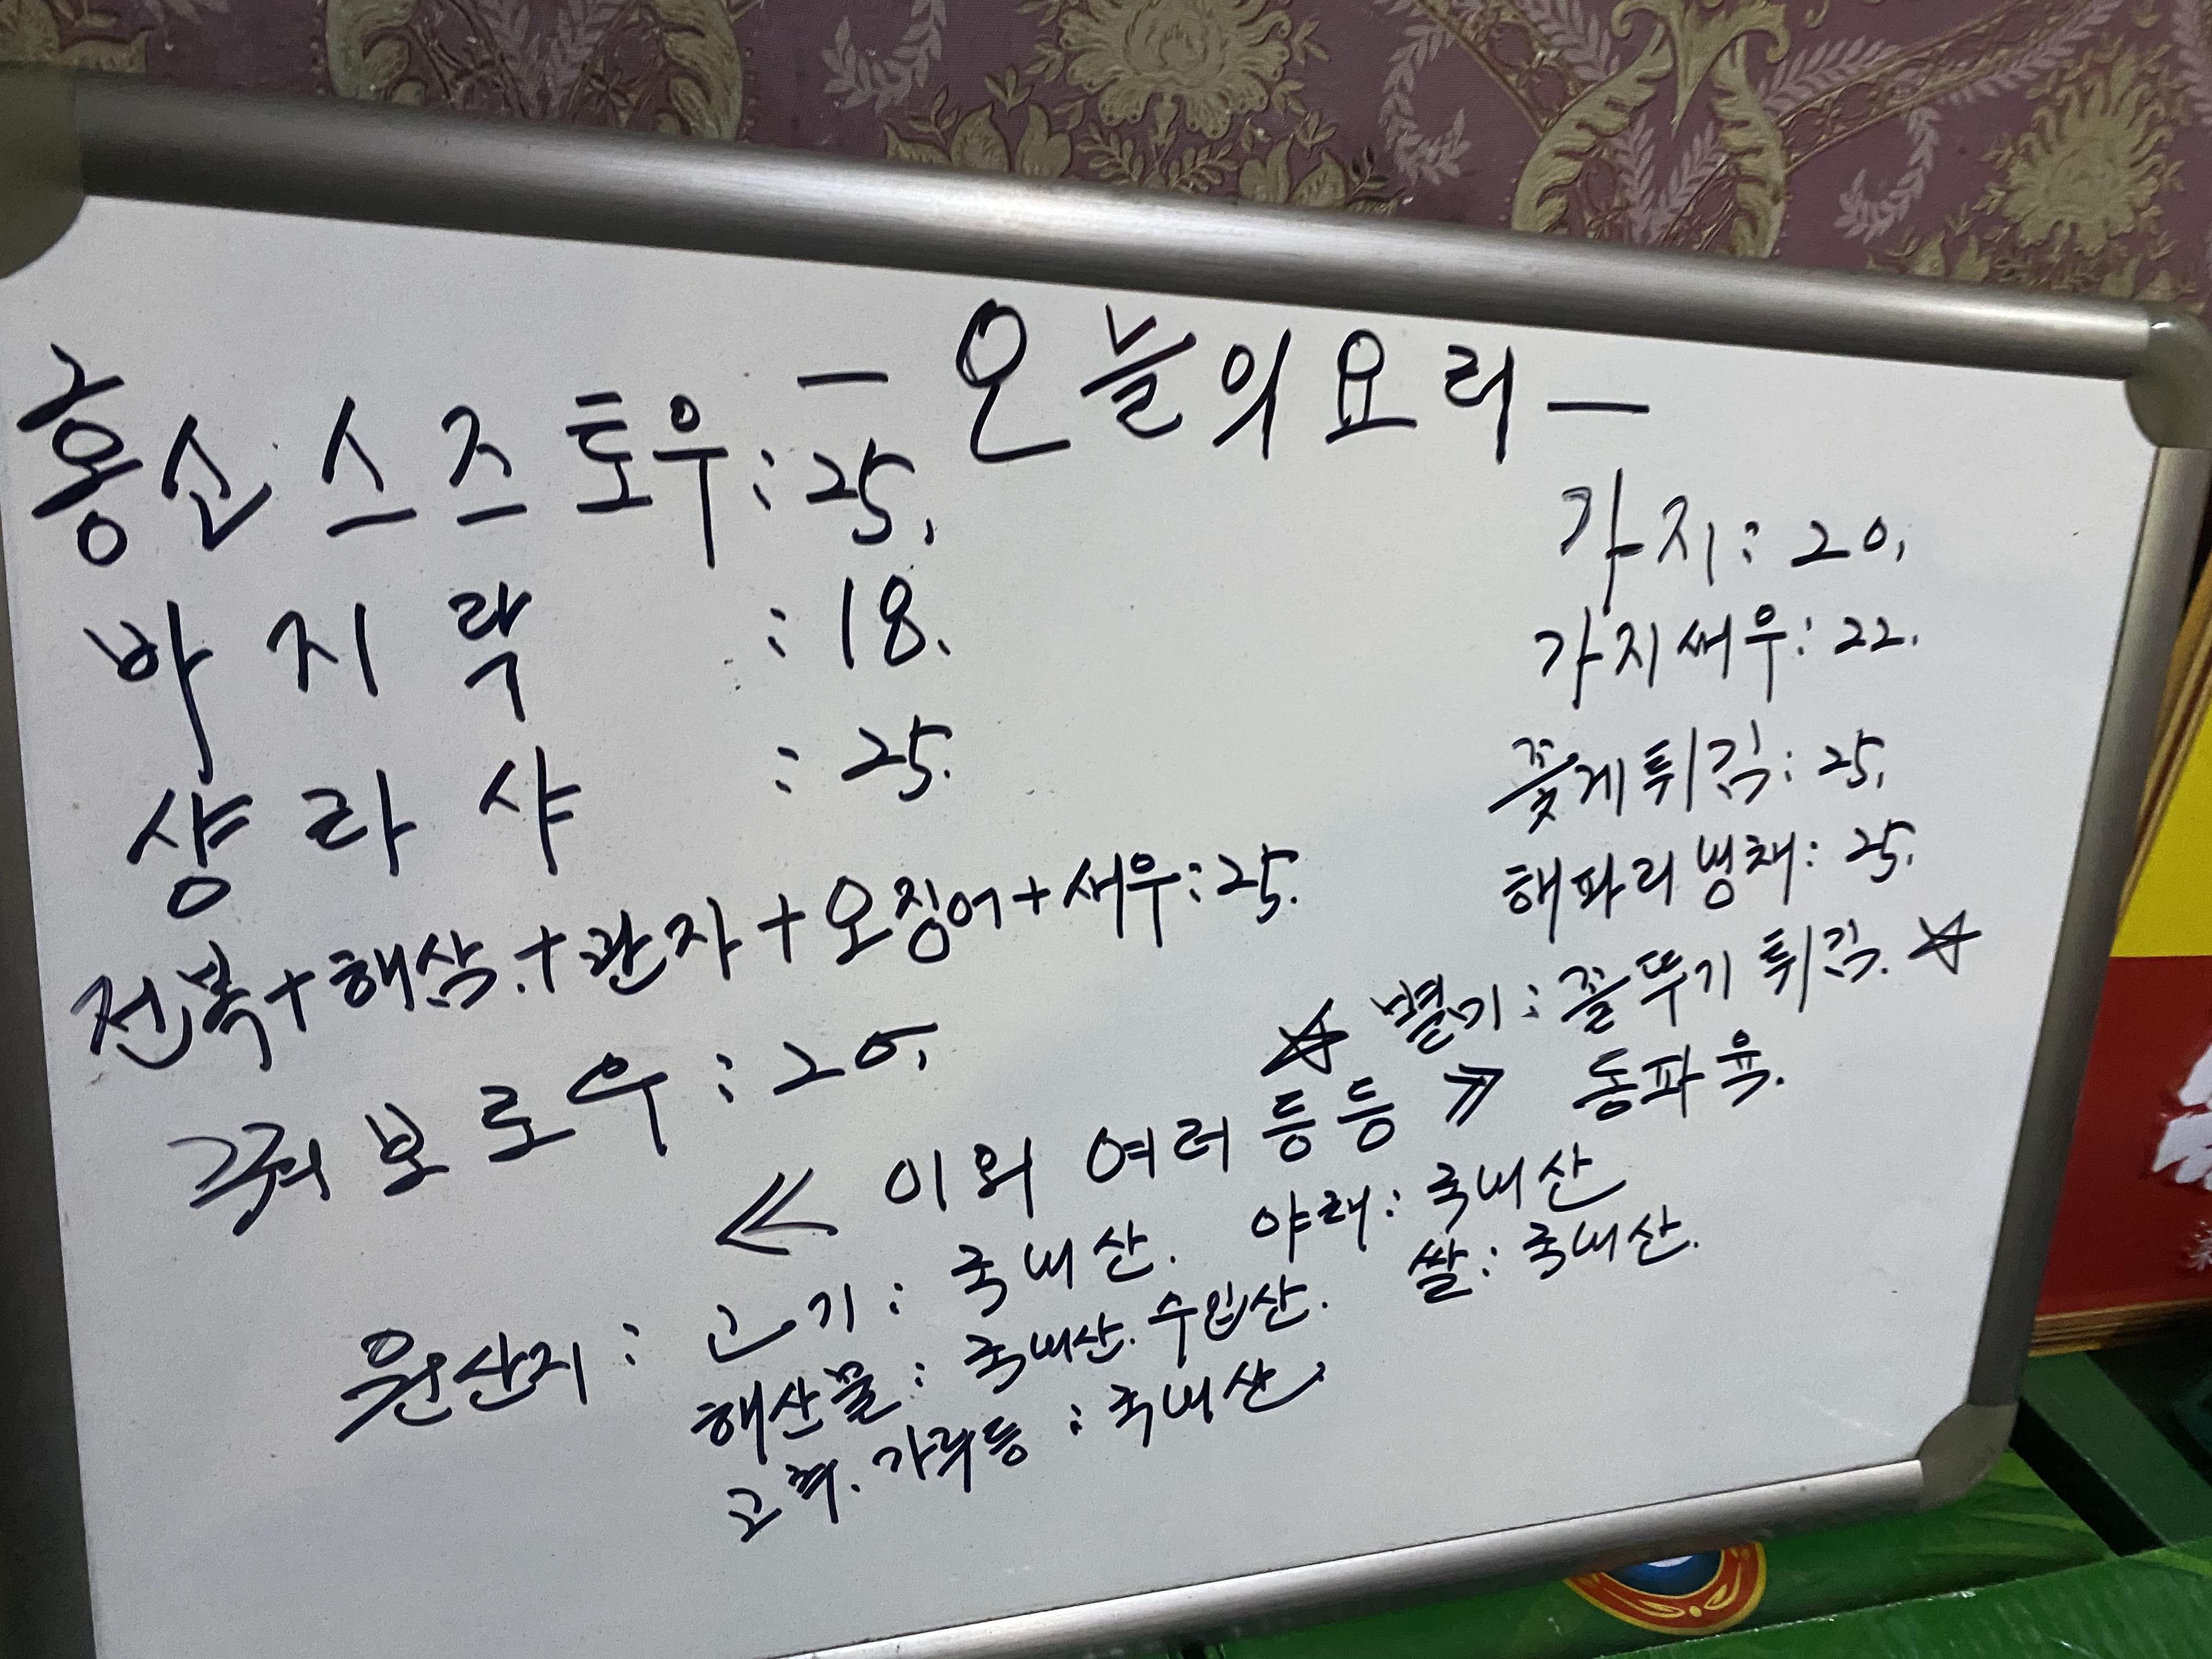 - 오늘의요리 -
홍소스즈토우 : 25.
바지락 : 18.
샹라샤 : 25.
전복+해삼+관자+오징어+새우 : 25.
궈보로우 : 20.
가지 : 20.
가지새우 : 22.
꽃게튀김 : 25.
해파리냉채 : 25.
☆ 별미 : 꼴뚜기 튀김. ☆
동파육.
≪ 이외 여러 등등 ≫
원산지 : 고기 : 국내산. 야채 : 국내산
해산물 : 국내산. 수입산. 쌀 : 국내산.
고추. 가루등 : 국내산.